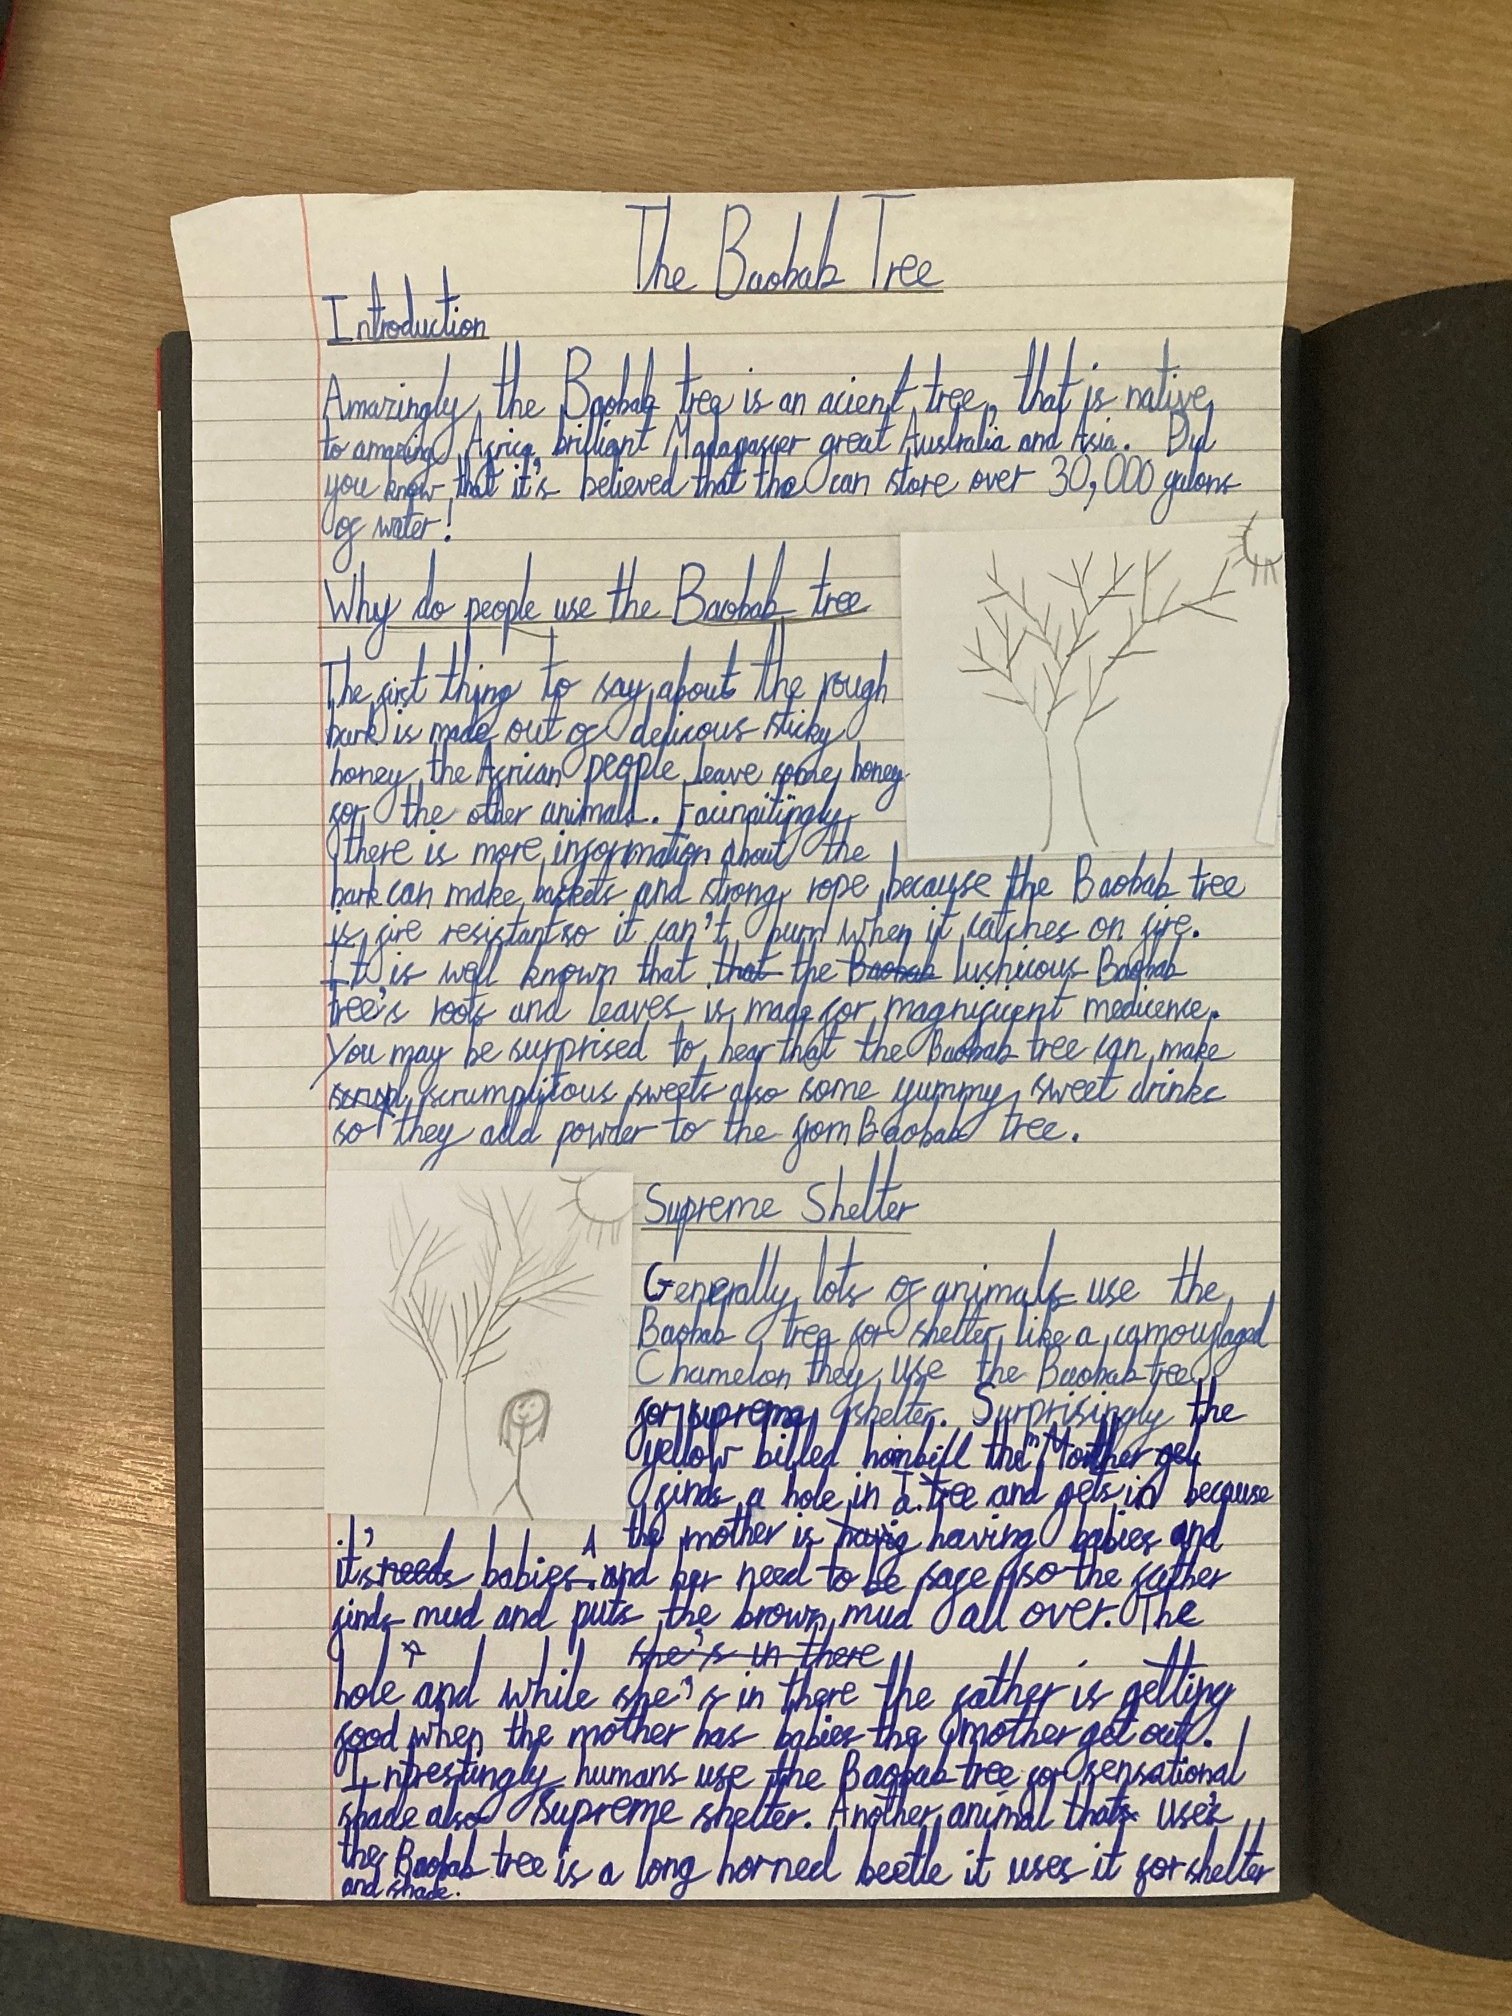 The Baobab Tree
Introduction
Amazingly, the Baobab tree is an acient tree, that is native
to amazing Africa, brilliant Madagascer great Australia and Asia. Did
you know that it's believed that the can store over 30,000 galons
of water!
Why do people use the Baobab tree
The first thing to say about the rough
bark is made out of delicous sticky
honey, the African people leave some honey
for the other animals. Facinpitingly
there is more information about the
bark can make baskets and strong rope because the Baobab tree
is fire resistant so it can't burn when it catches on fire.
It is well known that that the Baobab lushicous Baobab
tree's roots and leaves is made for magnificent medicence.
You may be surprised to hear that the Baobab tree can make
scrumptitous sweets also some yummy sweet drinks
so they add powder to the from Baobab tree.
Supreme Shelter
Generally, lots of animals use the
Baobab tree for shelter like a camouflaged
Chamelon they use the Baobab tree
for supreme shelter. Surprisingly the
yellow billed hornbill the Mother
finds a hole in a tree and gets in because
the mother is having having babies and
it's needs babies and her need to be safe so the father
finds mud and puts the brown mud all over. The
she's in there
hole and while she's in there the father is getting
food when the mother has babies the mother get out.
Intrestingly humans use the Baobab tree for sensational
shade also supreme shelter. Another animal that use's
the Baobab tree is a long horned beetle it uses it for shelter
and shade.